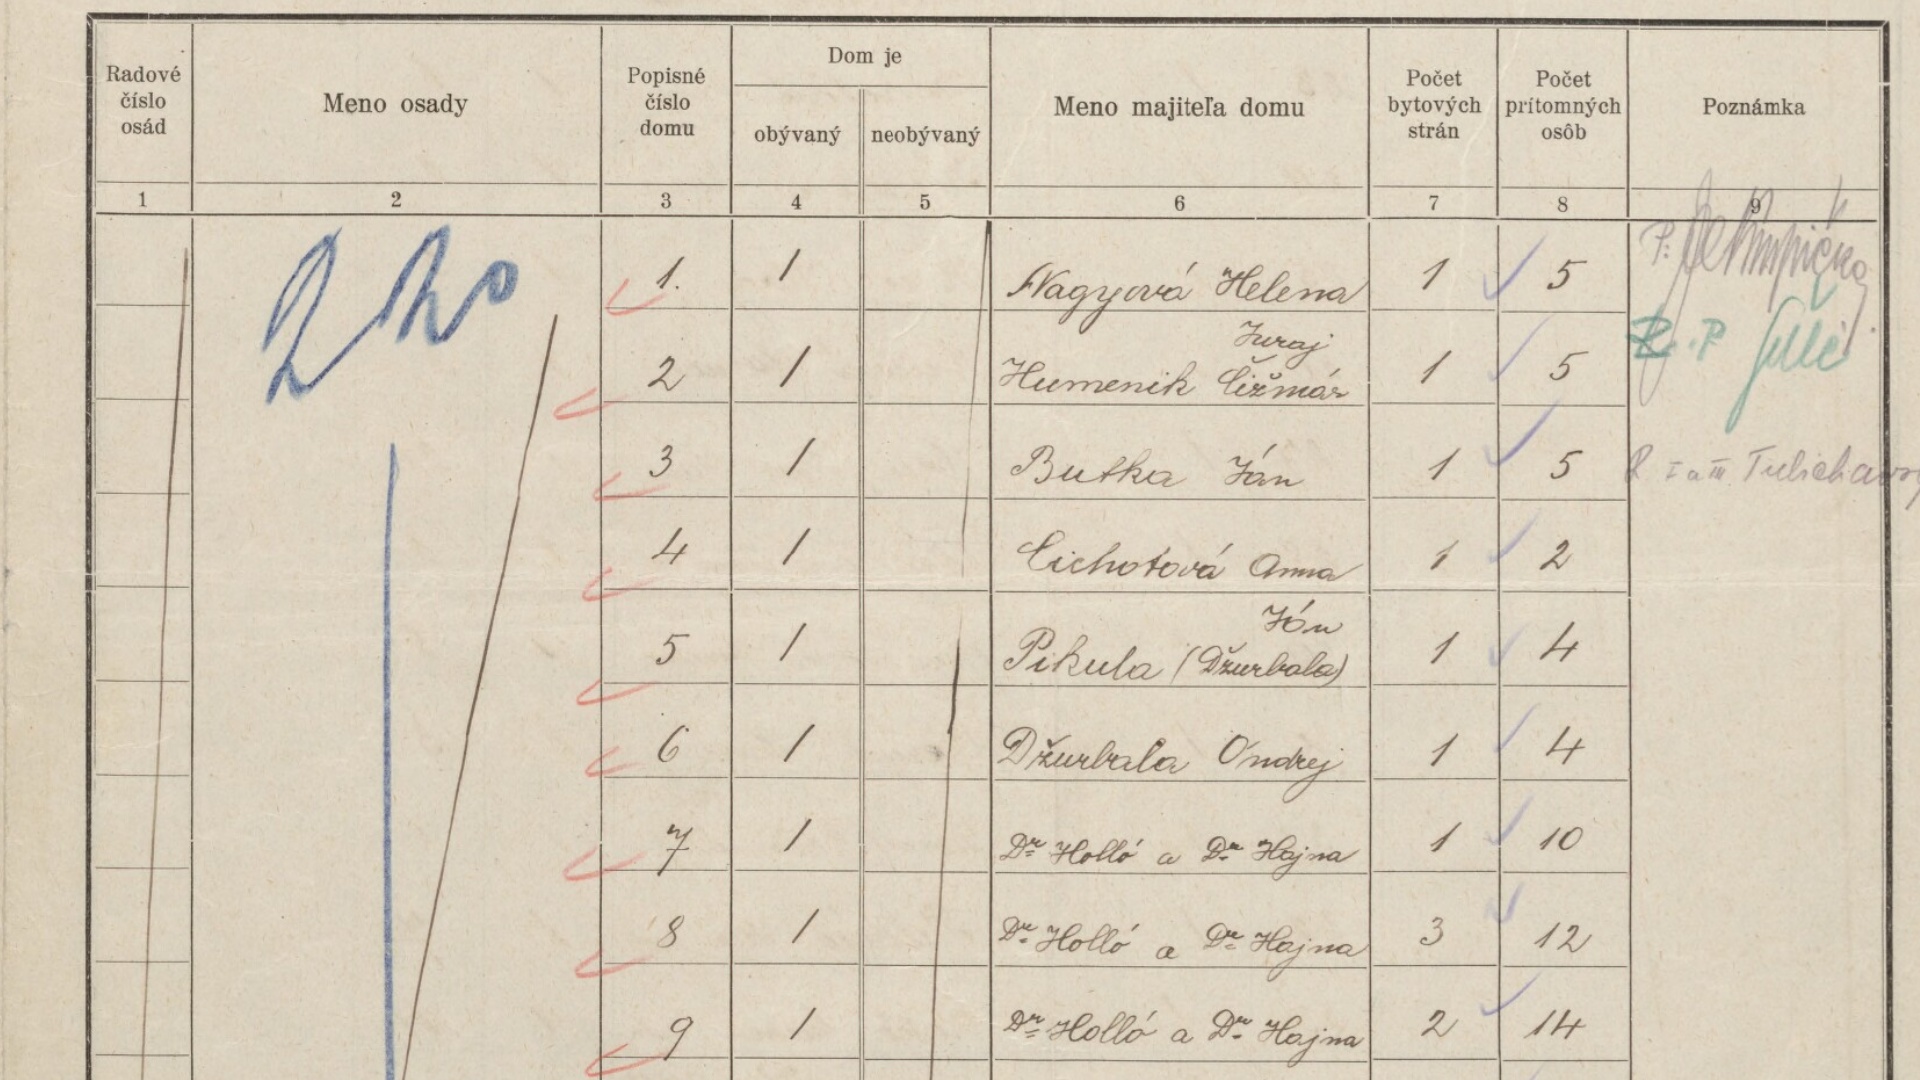 Radové číslo osád
Meno osady
Popisné číslo domu
Dom je
obývaný
neobývaný
Meno majiteľa domu
Počet bytových strán
Počet prítomných osôb
Poznámka
1 2 3 4 5 6 7 8 9
1. 1 Nagyová Helena 1 5
Juraj
2 1 Humenik Čižmár 1 5
3 1 Butka Ján 1 5
4 1 Cichotová Anna 1 2
Ján
5 1 Pikula (Džurbala) 1 4
6 1 Džurbala Ondrej 1 4
7 1 Dr Holló a Dr Hajna 1 10
8 1 Dr Holló a Dr Hajna 3 12
9 1 Dr Holló a Dr Hajna 2 14